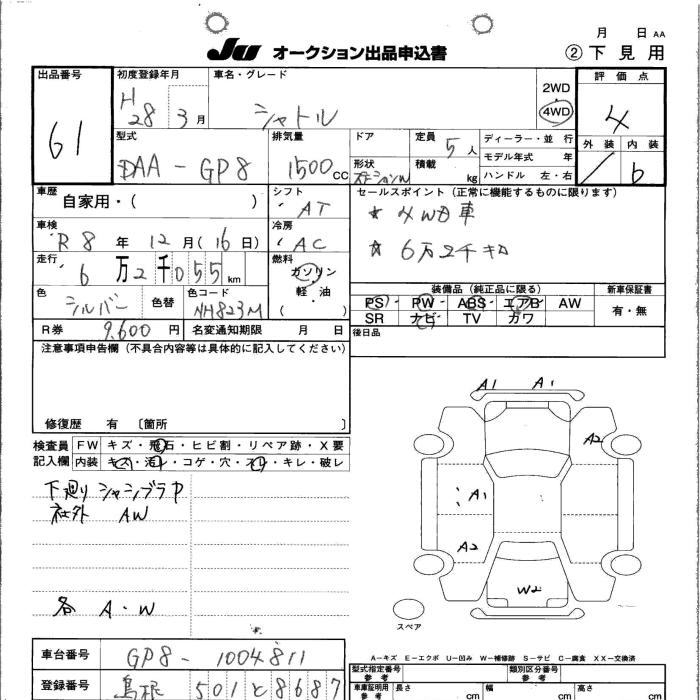 月 日 AA
JU オークション出品申込書 ② 下見用
出品番号 61
初度登録年月 H28 3月
車名・グレード シャトル
2WD
4WD
評価点 4
外装 内装 b
型式 DAA-GP8
排気量 1500 CC
ドア
形状 ステーションW
定員 5人
積載 kg
ディーラー・並 行
モデル年式 年
ハンドル 左・右
車歴 自家用・( )
シフト AT
セールスポイント (正常に機能するものに限ります)
★ 4WD車
★ 6万2千キロ
車検 R8年 12月(16日)
冷房 AC
走行 6万2千055km
燃料 ガソリン
軽・油
( )
色 シルバー 色替
色コード NH823M
装備品 (純正品に限る) 新車保証書
PS PW ABS エアB AW 有・無
SR ナビ TV カワ
R券 9,600 円 名変通知期限 月 日
後日品
注意事項申告欄 (不具合内容等は具体的に記入してください)
修復歴 有 〔箇所 〕
検査員 FW キズ・飛石・ヒビ割・リペア跡・X要
記入欄 内装 キズ・汚レ・コゲ・穴・スレ・キレ・破レ
下廻り シャシブラP
社外 AW
各 A・W
A1 A1
A2
A1
A2
W2
スペア
A-キズ E-エクボ U-凹み W-補修跡 S-サビ C-腐食 XX-交換済
車台番号 GP8-1004811
登録番号 島根 501 と 8687
型式指定番号 参考 類別区分番号 参考
車庫証明用 参考 長さ cm 幅 cm 高さ cm